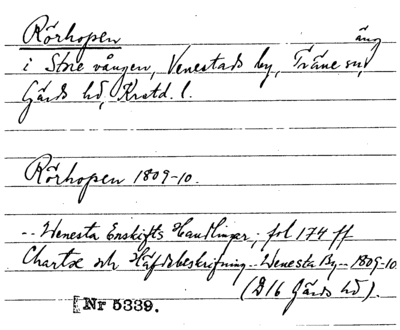 Rörhopen äng
i Store vången, Venestads by, Träne sn,
Gärds hd, Kratd. l.
Rörhopen 1809-10.
-- Wenesta Enskifts Handlingar. fol 174 ff
Chartæ och Häfdebeskrifning -- Wenesta By -- 1809-10.
(D16 Gärds hd).
Nr 5339.